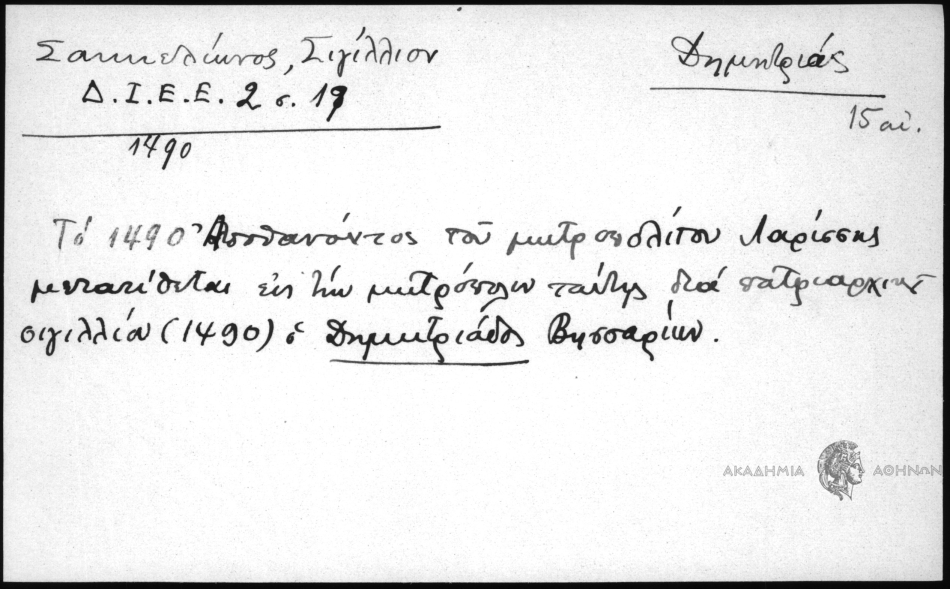 Σακκελίωνος, Σιγίλλιον
Δημητριάς
Δ. Ι. Ε. Ε. 2 σ. 19
15 αἰ.
1490
Τό 1490 Ἀποθανόντος τοῦ μητροπολίτου Λαρίσσης
μετατίθεται εἰς τήν μητρόπολιν ταύτης διά πατριαρχικοῦ
σιγιλλίου (1490) ὁ Δημητριάδος Βησσαρίων.
ΑΚΑΔΗΜΙΑ ΑΘΗΝΩΝ